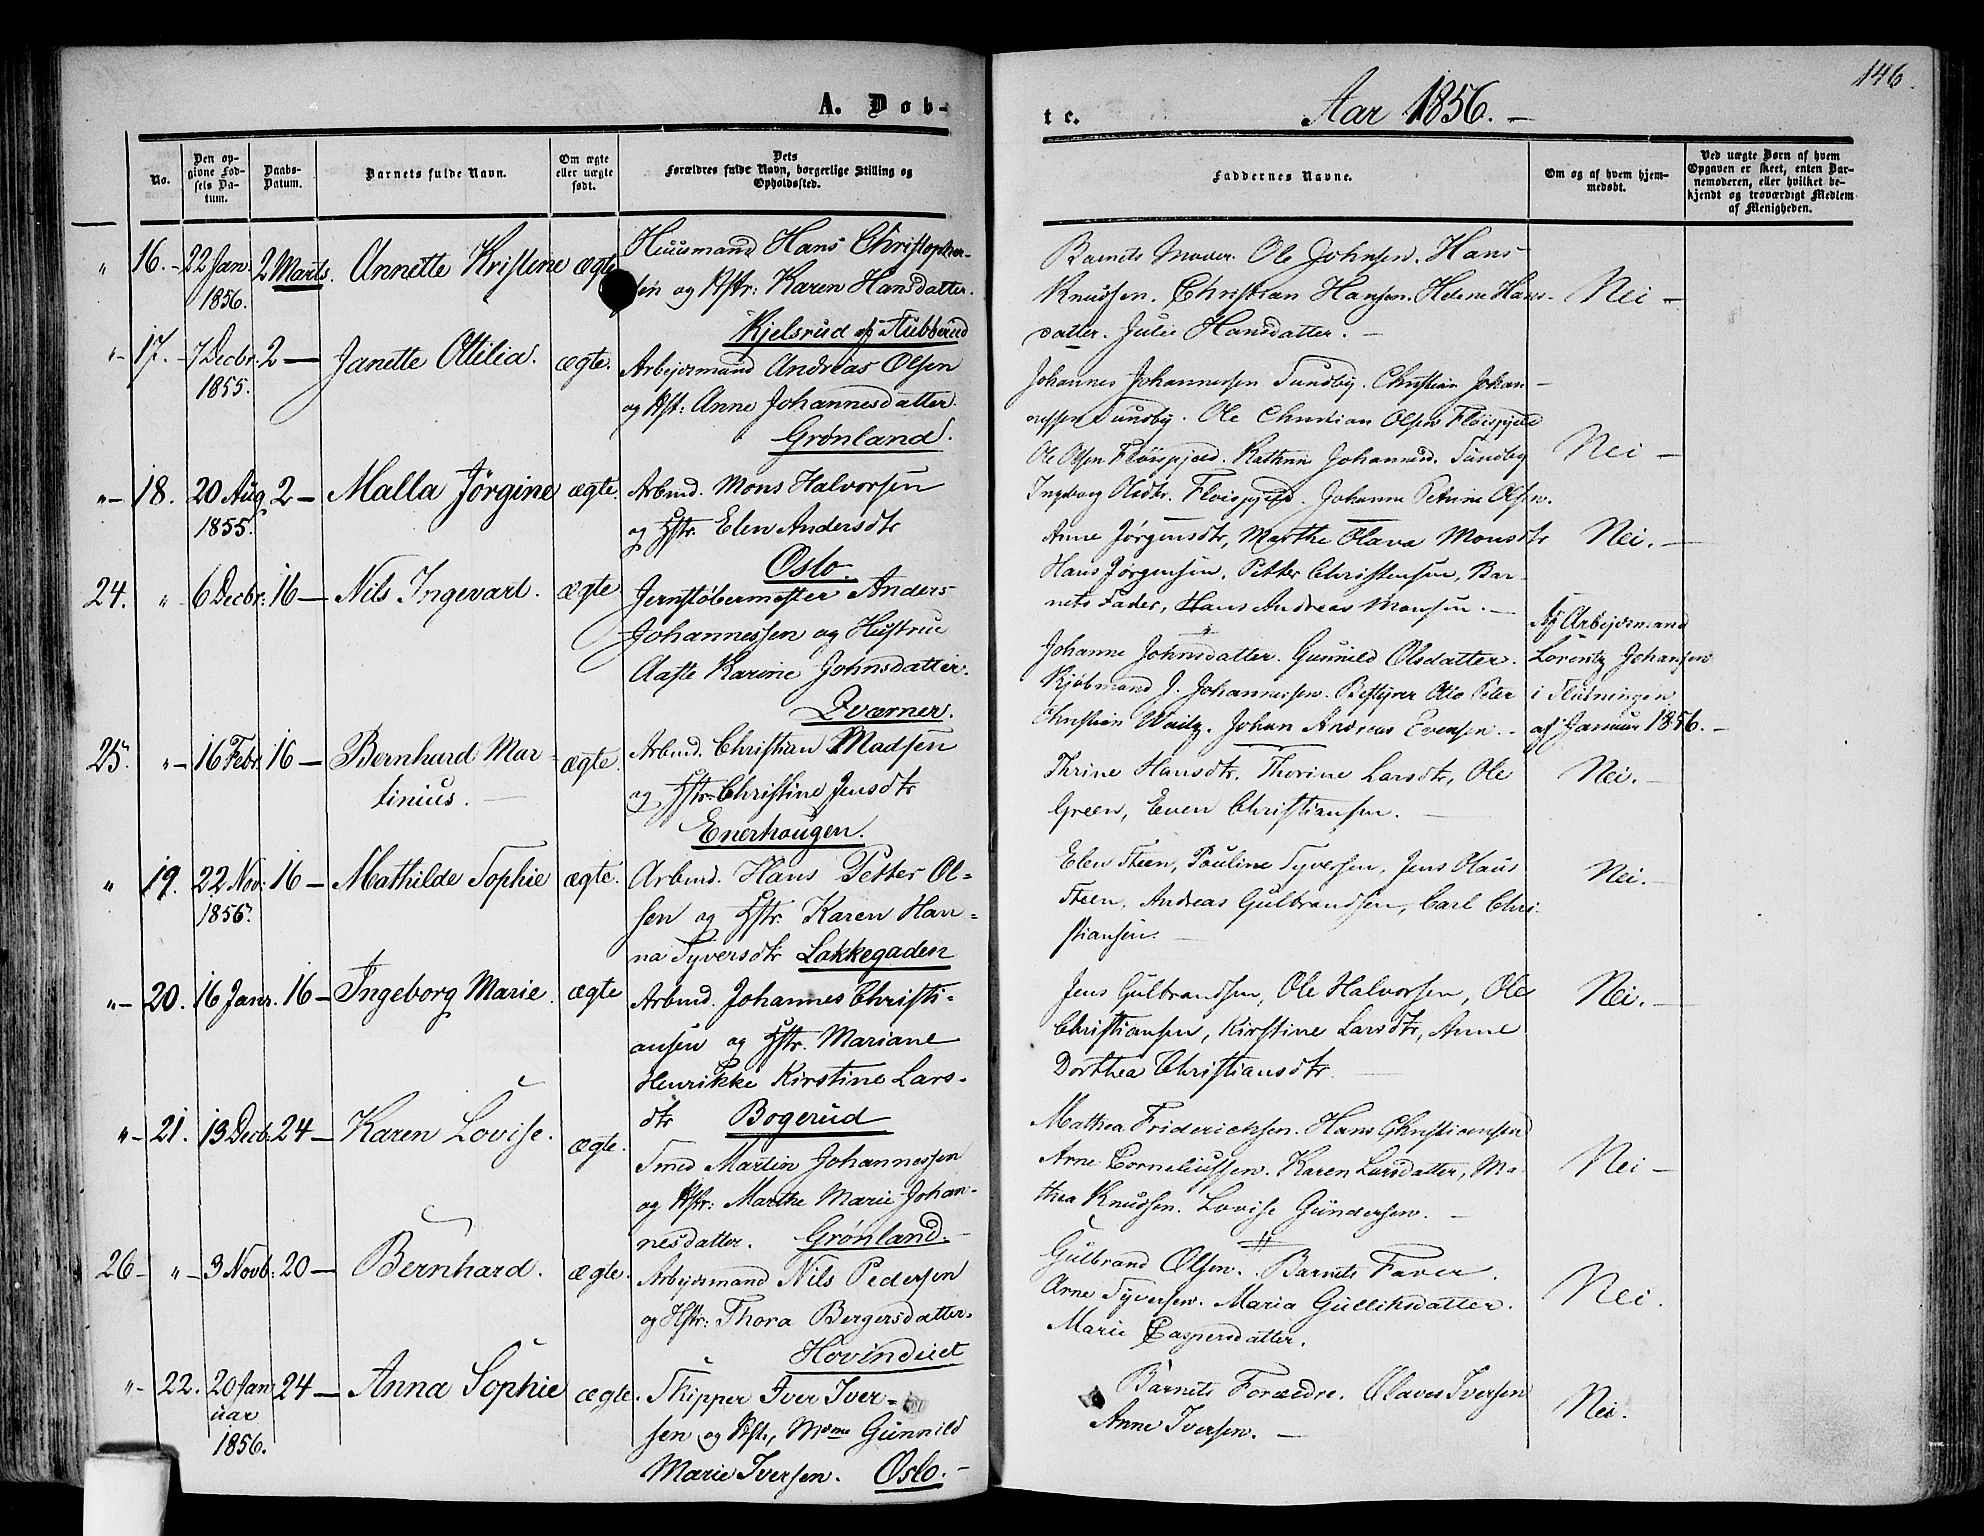 146.
A. Døb-
te.
Aar 1856. –
No.
Den op-
givne Fød-
sels Da-
tum.
Daabs-
Datum.
Barnets fulde Navn.
Om ægte
eller uægte
født.
Dets
Forældres fulde Navn, borgerlige Stilling og
Opholdssted.
Faddernes Navne.
Om og af hvem hjem-
medøbt.
Ved uægte Børn af hvem
Opgaven er skeet, enten Bar-
nemoderen, eller hvilket be-
kjendt og troværdigt Medlem
af Menigheden.
" 16. – 22 Jan. 2 Marts. Annette Kristine ægte
1856.
Huusmand Hans Christopher-
sen og Hstr: Karen Hansdatter.
Kjelsrud af Aubberud
Barnets Moder. Ole Johnsen. Hans
Knudsen. Christian Hansen. Helene Hans-
datter. Julie Hansdatter. –
Nei –
"– 17. – 7 Decbr. 2 – Janette Otilia. ægte.
1855.
Arbejdsmand Andreas Olsen
og Hst: Anne Johannesdatter.
Grønland.
Johannes Johannessen Sundby. Christian Johan-
nessen Sundby. Ole Christian Olsen Fløispjeld
Ole Olsen Fløispjeld. Kathrine Johannesd. Sundby
Ingeborg Olsdtr. Fløispjeld. Johanne Petrine Olsen.
Nei –
"– 18. 20 Aug. 2 – Malla Jørgine ægte
1855.
Arbmd. Mons Halvorsen
og Hstr. Elen Andersdtr
Oslo.
Anne Jørgensdtr, Marthe Olava Monsdtr
Hans Jørgensen, Petter Christensen, Bar-
nets Fader, Hans Andreas Monsen. –
Nei. –
24. " 6 Decbr: 16 – Nils Ingevart. ægte
Jernstøbermester Anders
Johannessen og Hustrue
Aaste Karine Johnsdatter.
Dværner.
Johanne Johnsdatter. Gunnild Olsdatter.
Kjøbmand J. Johannessen. Bestyrer Otto Peter
Christian Waitz. Johan Andreas Evensen. –
Af Arbejdsmand
Lorentz Johansen
i Slutningen
af Januar 1856. –
25. "– 16 Febr. 16 – Bernhard Mar-
tinius. –
ægte.
Arbmd. Christian Madsen
og Hstr. Christine Jensdtr
Enerhougen.
Thrine Hansdtr. Thorine Larsdtr, Ole
Green, Even Christiansen. –
Nei. –
" 19. 22 Nov: 16 – Mathilde Sophie ægte.
1856.
Arbmd. Hans Petter Ol-
sen og Hstr. Karen Han-
na Syversdtr Lakkegaden
Elen Steen, Pauline Syversen, Jens Olaus
Steen, Andreas Gulbrandsen, Carl Chri-
stiansen. –
Nei. –
"– 20. 16 Janr. 16 – Ingeborg Marie. ægte
Arbmd. Johannes Christi-
ansen og Hstr. Mariane
Henrikke Kirstine Lars-
dtr Bogerud
Jens Gulbrandsen, Ole Halvorsen, Ole
Christiansen, Kirstine Larsdtr, Anne
Dorthea Christiansdtr.
Nei. –
"– 21. 13 Decb: 24 – Karen Lovise. ægte.
Smed Martin Johannessen
og Hstr: Marthe Marie Johan-
nesdatter. Grønland. –
Mathea Friderichsen. Hans Christiansen
Arne Corneliussen. Karen Larsdatter, Ma-
thea Knudsen. Lovise Gundersen. –
Nei –
26 – "– 3 Novb: 20 – Bernhard. ægte.
Arbejdsmand Nils Pedersen
og Hstr: Thora Bergersdatter.
Hovindeiet
Gulbrand Olsen. Barnets Fader.
Arne Syversen. Maria Gulliksdatter.
Marie Caspersdatter.
Nei.
"– 22. 20 Jan 24 – Anna Sophie ægte.
uar
1856.
Skipper Iver Iver-
sen og Hst., Mdme Gunnild
Marie Iversen. Oslo. –
Barnets Forældre. Olaves Iversen
Anne Iversen. –
Nei.